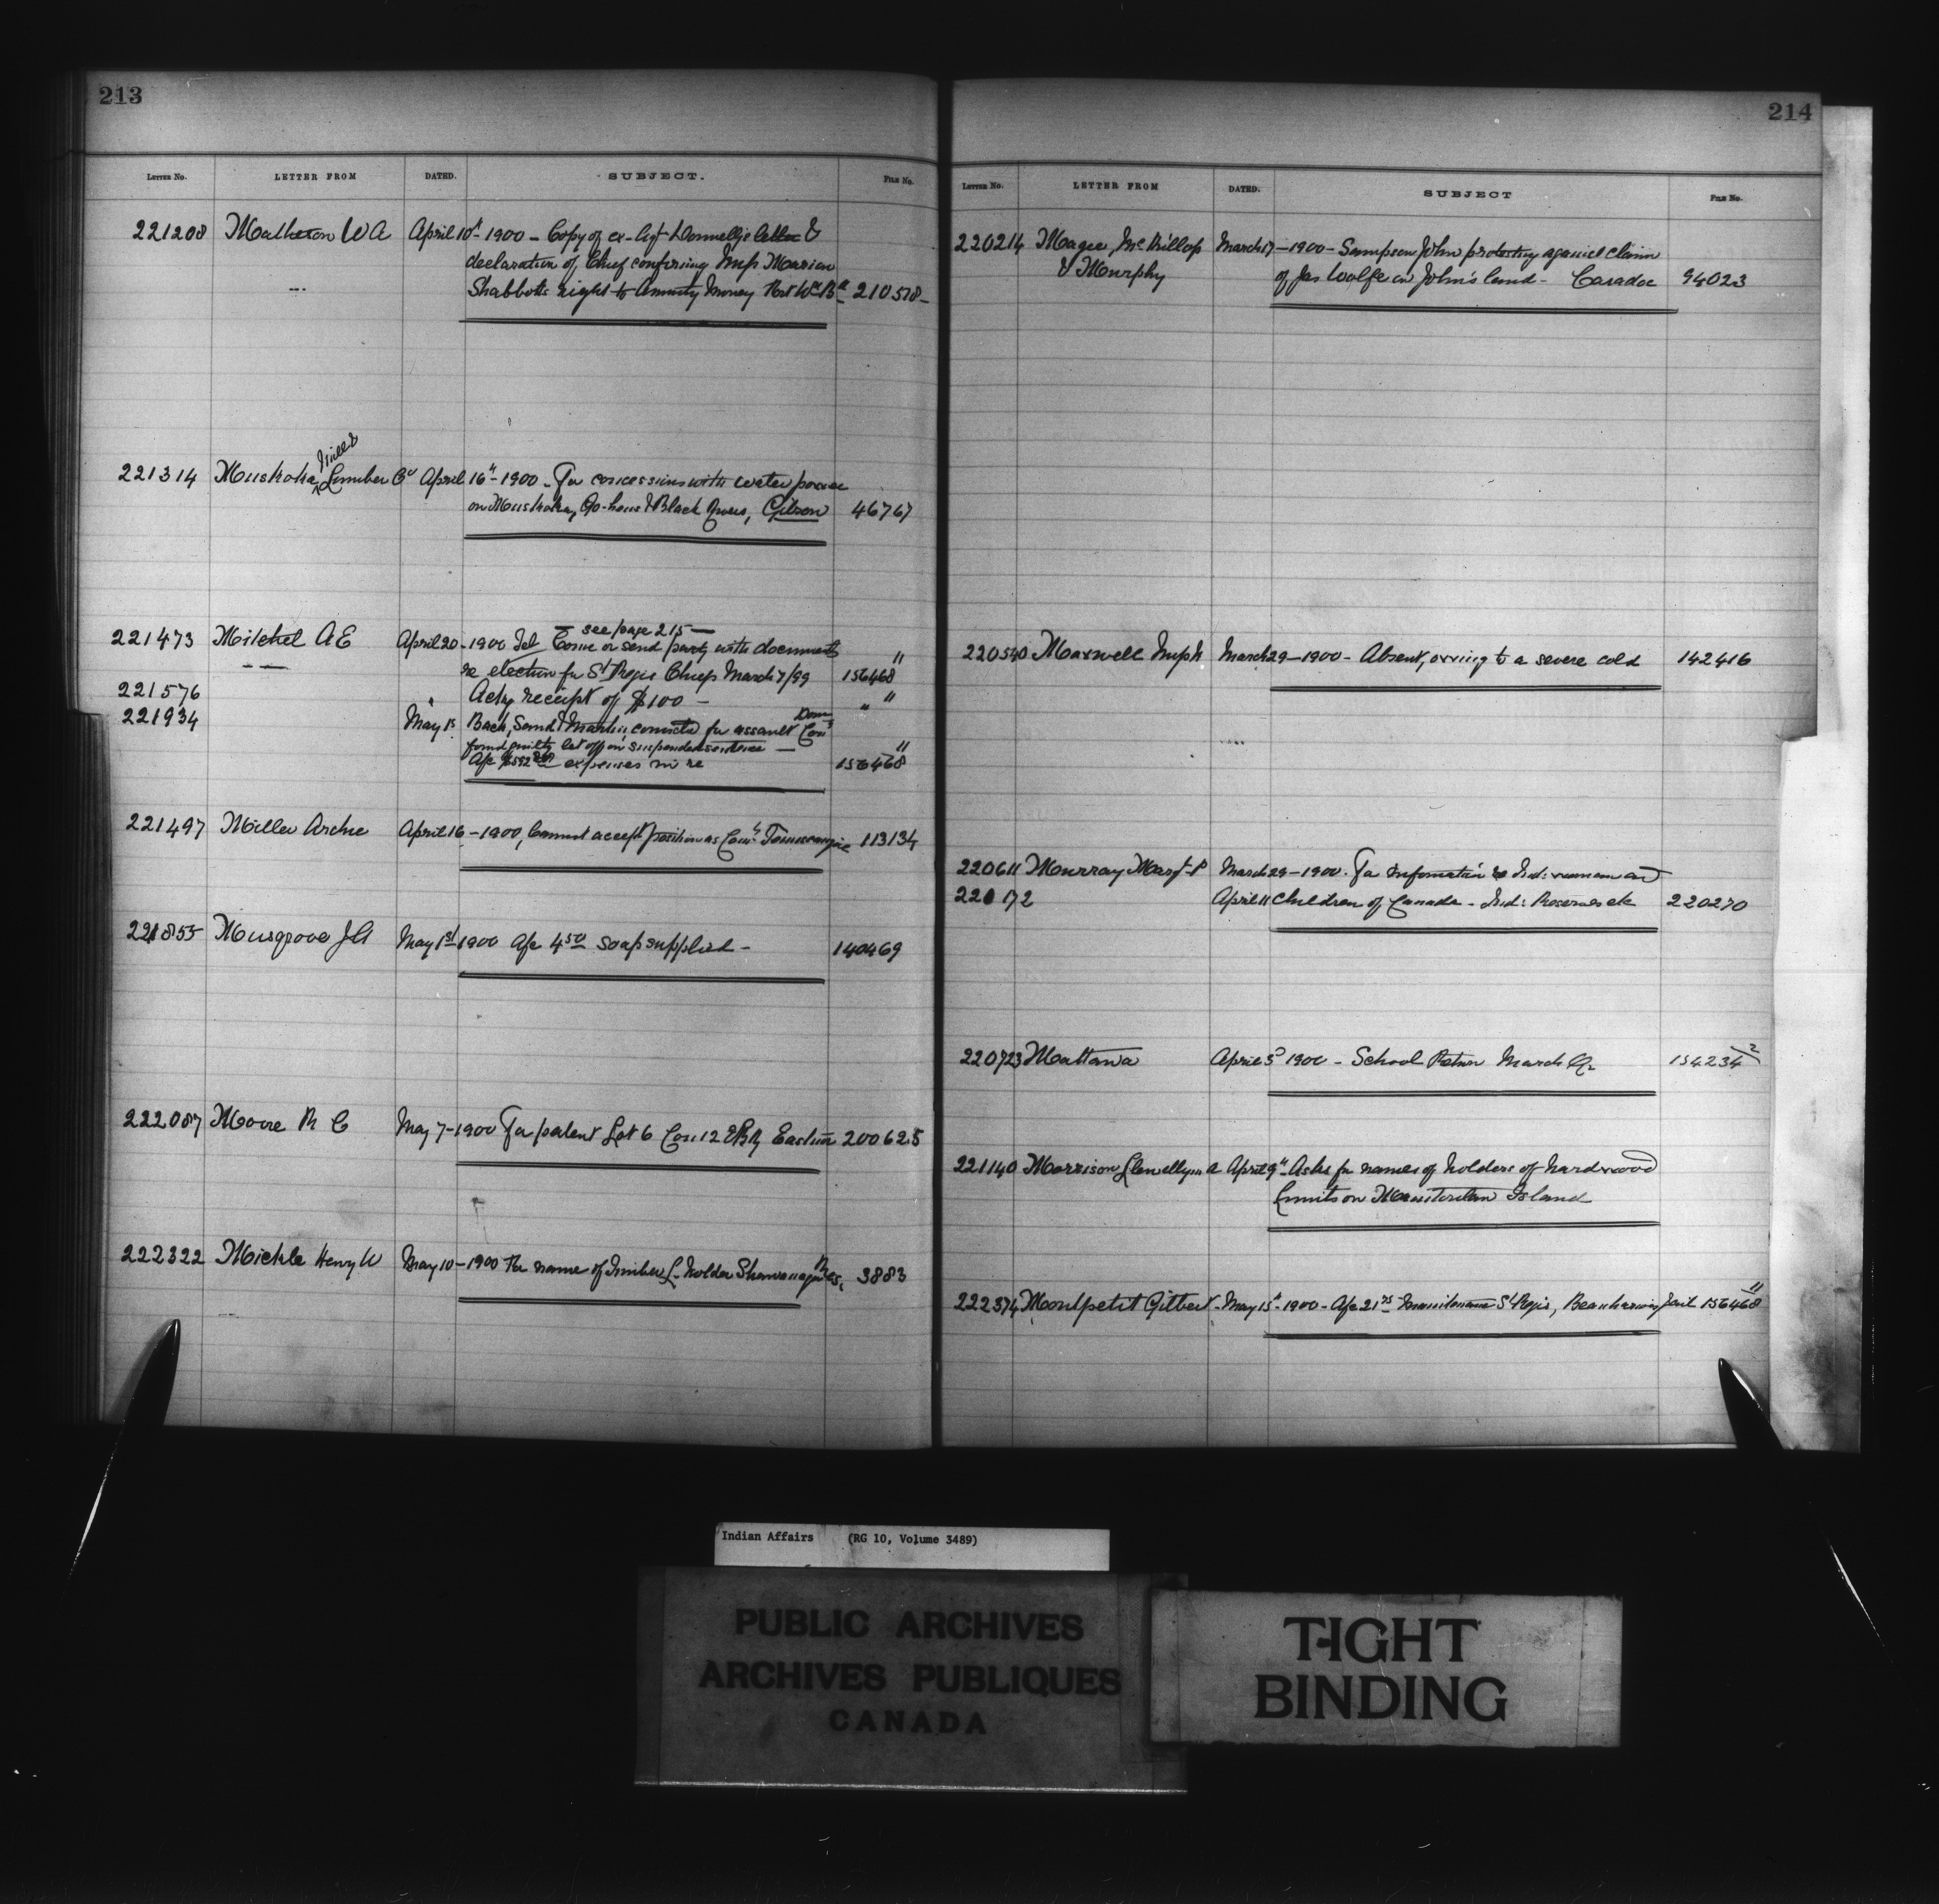 213
LETTER No. LETTER FROM DATED. SUBJECT. FILE No.
221208 Matheson W A April 10th 1900 - Copy of ex-Agt Donnelly's letter &
declaration of Chief confirming Marian
Shabbott's right to Annuity Money 210578
221314 Muskoka Mills Lumber Co April 16" - 1900 - For concessions with water power
on Muskoka, Go-home & Black Rivers, Gibson 46767
- see page 215 -
221473 Mitchel A E April 20 - 1900 Tel Come or send party with documents "
re election for St Regis Chiefs March 7/99 156468
221576 " Ackg receipt of $100 - " "
221934 May 1st Back, Sand & Martin convicted for assault Dom Cons
found guilty let off on suspended sentence - "
expenses in re 156468
221497 Miller Archie April 16 - 1900, Cannot accept position as Temiscamingue 113134
221855 Musgrove J A May 1st 1900 A/c 4.50 soap supplied - 140469
222087 Moore R C May 7 - 1900 For patent Lot 6 Con 12 EBR Eastnor 200625
222322 Mickle Henry W May 10 - 1900 For name of Timber L. holder Shawanaga Res, 3883
214
LETTER No. LETTER FROM DATED. SUBJECT FILE No.
220214 Magee, McKillop March 17 - 1900 - Sampson John protesting against claim
& Murphy of Jas Wolfe on John's land - Caradoc 94023
220540 Maxwell March 29 - 1900 - Absent, owing to a severe cold 142416
220611 Murray Margt P March 29 - 1900. For information re Ind: women and
220172 April 11 Children of Canada - Ind: Reserves etc 220270
220723 Mattawa April 3d 1900 - School Return March Qr 154234 2
221140 Morrison Llewellyn A April 9" Asks for names of holders of hardwood
Limits on Manitoulin Island
222374 Montpetit Gilbert - May 15" - 1900 - A/c 21.75 Maintenance St Regis, Beauharnois Jail 156468 "
Indian Affairs (RG 10, Volume 3489)
PUBLIC ARCHIVES
ARCHIVES PUBLIQUES
CANADA
TIGHT
BINDING